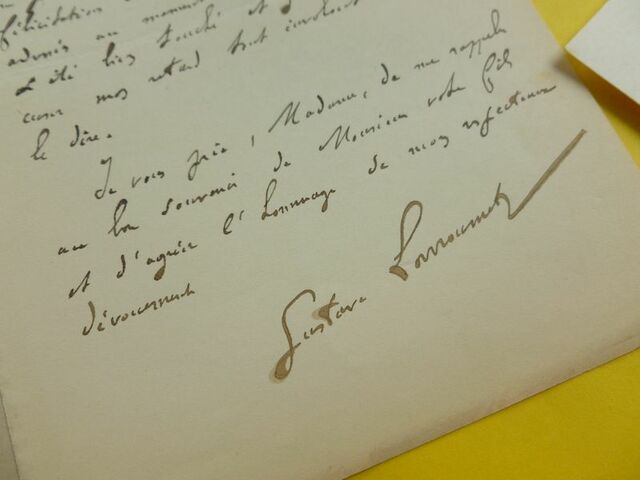 félicitations
admis au
a été très touché et
mon retard tout involontaire
le dire.
Je vous prie, Madame, de me rappeler
au bon souvenir de Monsieur votre fils
et d'agréer l'hommage de mon respectueux
dévouement
Gustave Larroumet